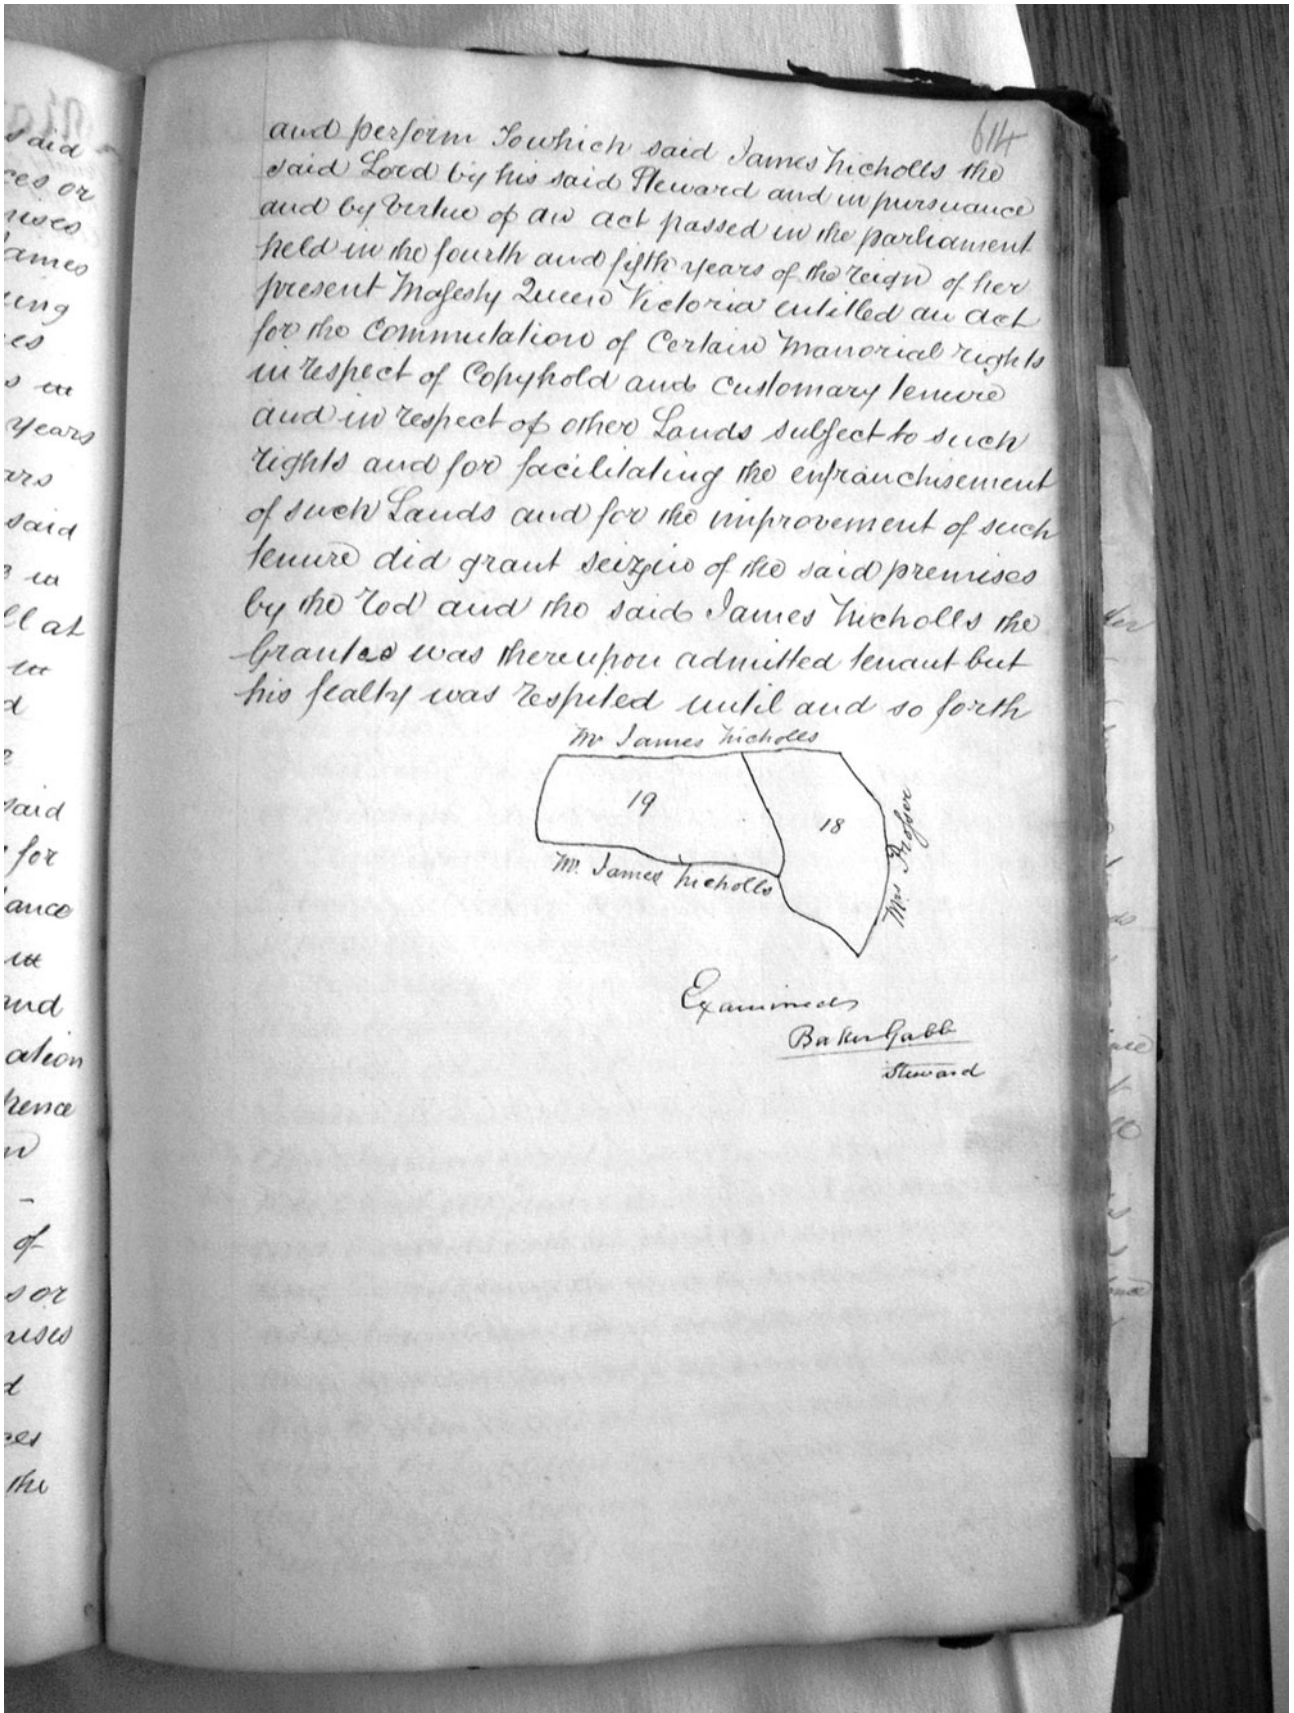 said
ces or
rises
James
ung
es
s in
years
ars
said
in
ll at
in
d
said
for
ance
in
and
ation
hence
of
s or
rises
d
ces
the
614
and perform To which said James Nicholls the
said Lord by his said Steward and in pursuance
and by virtue of an act passed in the parliament
held in the fourth and fifth years of the reign of her
present Majesty Queen Victoria entitled an act
for the Commutation of Certain Manorial rights
in respect of Copyhold and Customary tenure
and in respect of other Lands subject to such
rights and for facilitating the enfranchisement
of such Lands and for the improvement of such
tenure did grant seizin of the said premises
by the rod and the said James Nicholls the
Grantee was thereupon admitted tenant but
his fealty was respited until and so forth
Mr James Nicholls
19
18
Mrs Prosser
Mr. James Nicholls
Examined
Baker Gabb
Steward